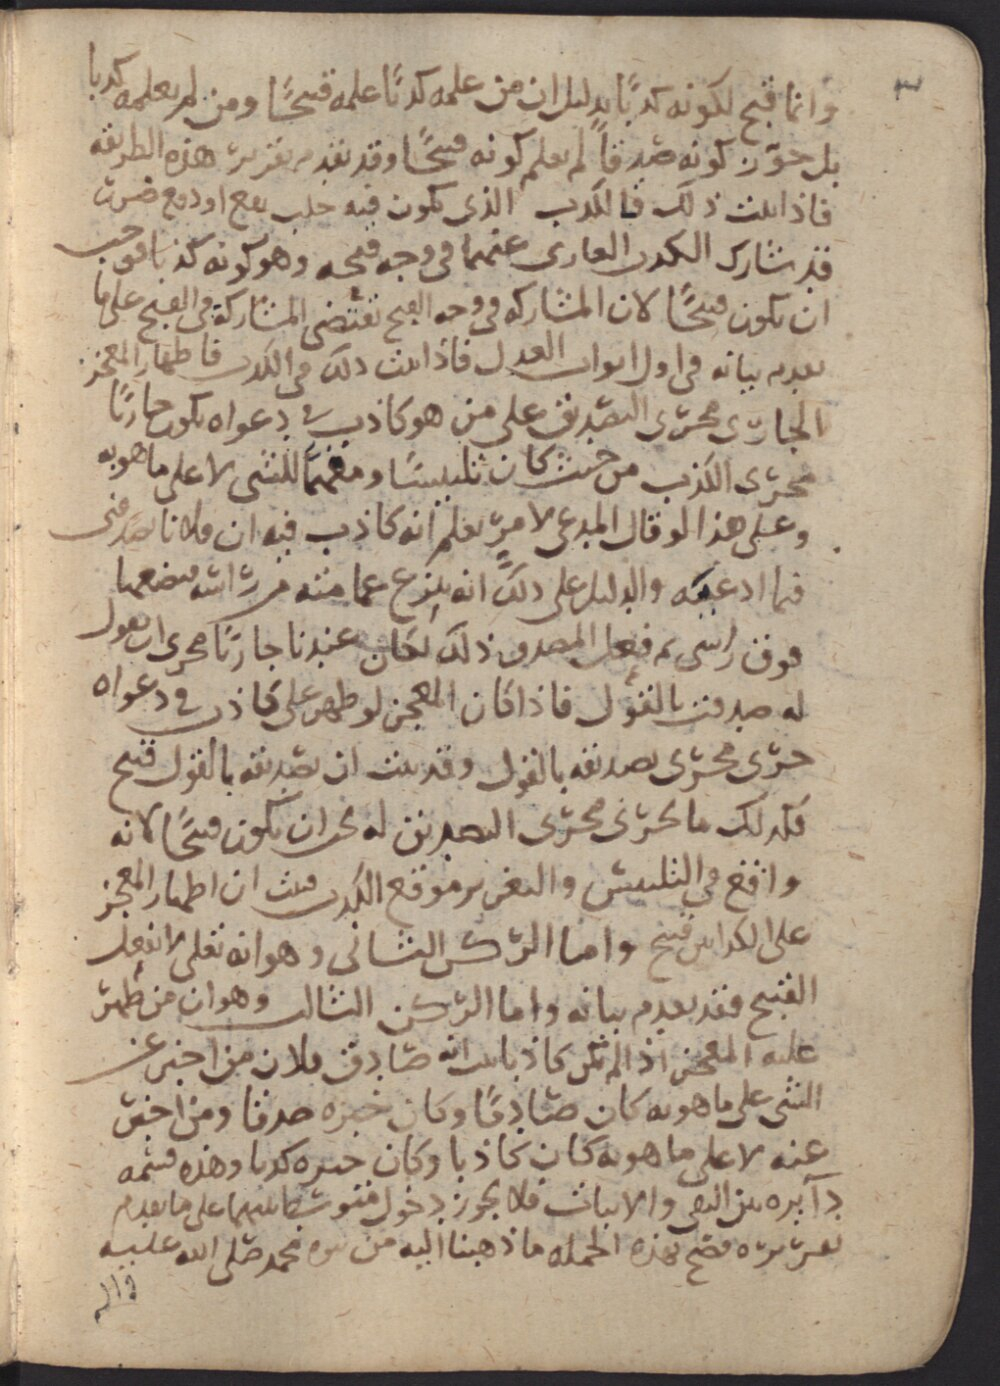 وانما قبح لكونه كذبا بدليل ان من علمه كذبا علمه قبيحا ومن لم يعلمه كذبا
بل جوز كونه صدقا لم يعلم كونه قبيحا وقد تقدم تقرير هذه الطريقة
فاذا ثبت ذلك فالكذب الذي يكون فيه جلب نفع او دفع ضرر
قد شارك الكذب العاري عنهما في وجه قبحه وهو كونه كذبا فوجب
ان يكون قبيحا لان المشاركه في وجه القبح تقتضي المشاركة في القبح على ما
تقدم بيانه في اول ابواب العدل فاذا ثبت ذلك في الكذب فاظهار المعجز
الجاري مجرى التصديق على من هو كاذب في دعواه يكون جاريا
مجرى الكذب من حيث كان تلبيسا ومفهما للشي لا على ما هو به
وعلى هذا لو قال المدعي لامر يعلم انه كاذب فيه ان فلانا يصدقني
فيما ادعيته والدليل على ذلك انه ينزع عمامته من راسه فيضعها
فوق راسي ثم فعل المصدق ذلك لكان عندنا جاريا مجرى ان يقول
له صدقت بالقول فاذا كان المعجز لو ظهر على كاذب في دعواه
جرى مجرى تصديقه بالقول وقد بينت ان تصديقه بالقول قبيح
فكذلك ما يجري مجرى التصديق له يجب ان يكون قبيحا لانه
واقع في التلبيس والتغرير موقع الكذب فثبت ان اظهار المعجز
على الكذابين قبيح واما الركن الثاني وهو انه تعالى لا يفعل
القبيح فقد تقدم بيانه واما الركن الثالث وهو ان من ظهر
عليه المعجز اذا لم يكن كاذبا ثبت انه صادق فلان من اخبر عن
الشي على ما هو به كان صادقا وكان خبره صدقا ومن اخبر
عنه لا على ما هو به كان كاذبا وكان خبره كذبا وهذه قسمه
دآيره بين النفي والاثبات فلا يجوز دخول متوسط بينهما على ما تقدم
تقريره فصح بهذه الجمله ما ذهبنا اليه من نبوة محمد صلى الله عليه
واله